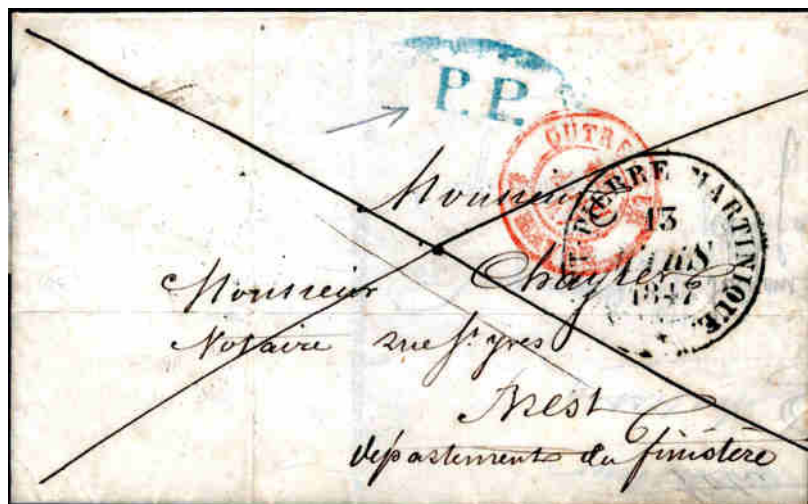 P.P.
OUTRE
St PIERRE MARTINIQUE
13
1847
Monsieur
Monsieur
Notaire rue St yves
Brest
département du finistère